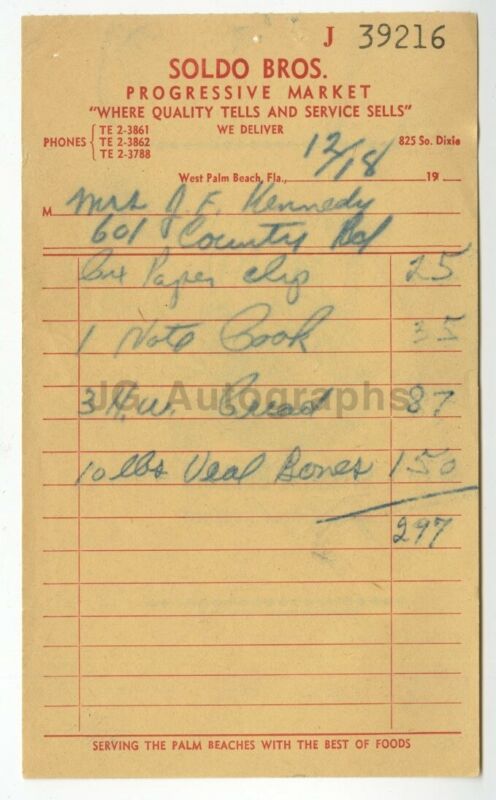 J 39216
SOLDO BROS.
PROGRESSIVE MARKET
"WHERE QUALITY TELLS AND SERVICE SELLS"
PHONES { TE 2-3861 TE 2-3862 TE 2-3788
WE DELIVER
825 So. Dixie
12/18
West Palm Beach, Fla., 19
M Mrs J. F. Kennedy
601 County Rd
Box Paper clip 25
1 Note Book 35
3 H.W. Bread 87
JG Autographs
10 lbs Veal Bones 150
297
SERVING THE PALM BEACHES WITH THE BEST OF FOODS